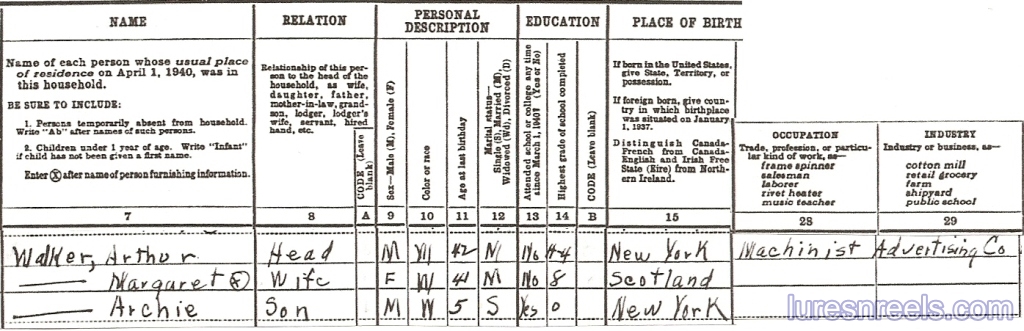 NAME
RELATION
PERSONAL DESCRIPTION
EDUCATION
PLACE OF BIRTH
Name of each person whose usual place of residence on April 1, 1940, was in this household.
BE SURE TO INCLUDE:
1. Persons temporarily absent from household. Write "Ab" after names of such persons.
2. Children under 1 year of age. Write "Infant" if child has not been given a first name.
Enter ⓧ after name of person furnishing information.
Relationship of this person to the head of the household, as wife, daughter, father, mother-in-law, grandson, lodger, lodger's wife, servant, hired hand, etc.
CODE (Leave blank)
Sex—Male (M), Female (F)
Color or race
Age at last birthday
Marital status—Single (S), Married (M), Widowed (Wd), Divorced (D)
Attended school or college any time since March 1, 1940? (Yes or No)
Highest grade of school completed
CODE (Leave blank)
If born in the United States, give State, Territory, or possession.
If foreign born, give country in which birthplace was situated on January 1, 1937.
Distinguish Canada-French from Canada-English and Irish Free State (Eire) from Northern Ireland.
OCCUPATION
Trade, profession, or particular kind of work, as—
frame spinner
salesman
laborer
rivet heater
music teacher
INDUSTRY
Industry or business, as—
cotton mill
retail grocery
farm
shipyard
public school
7 8 A 9 10 11 12 13 14 B 15 28 29
Walker, Arthur Head M W 42 M No H-4 New York Machinist Advertising Co
Margaret ⓧ Wife F W 41 M No 8 Scotland
Archie Son M W 5 S Yes 0 New York
luresnreels.com